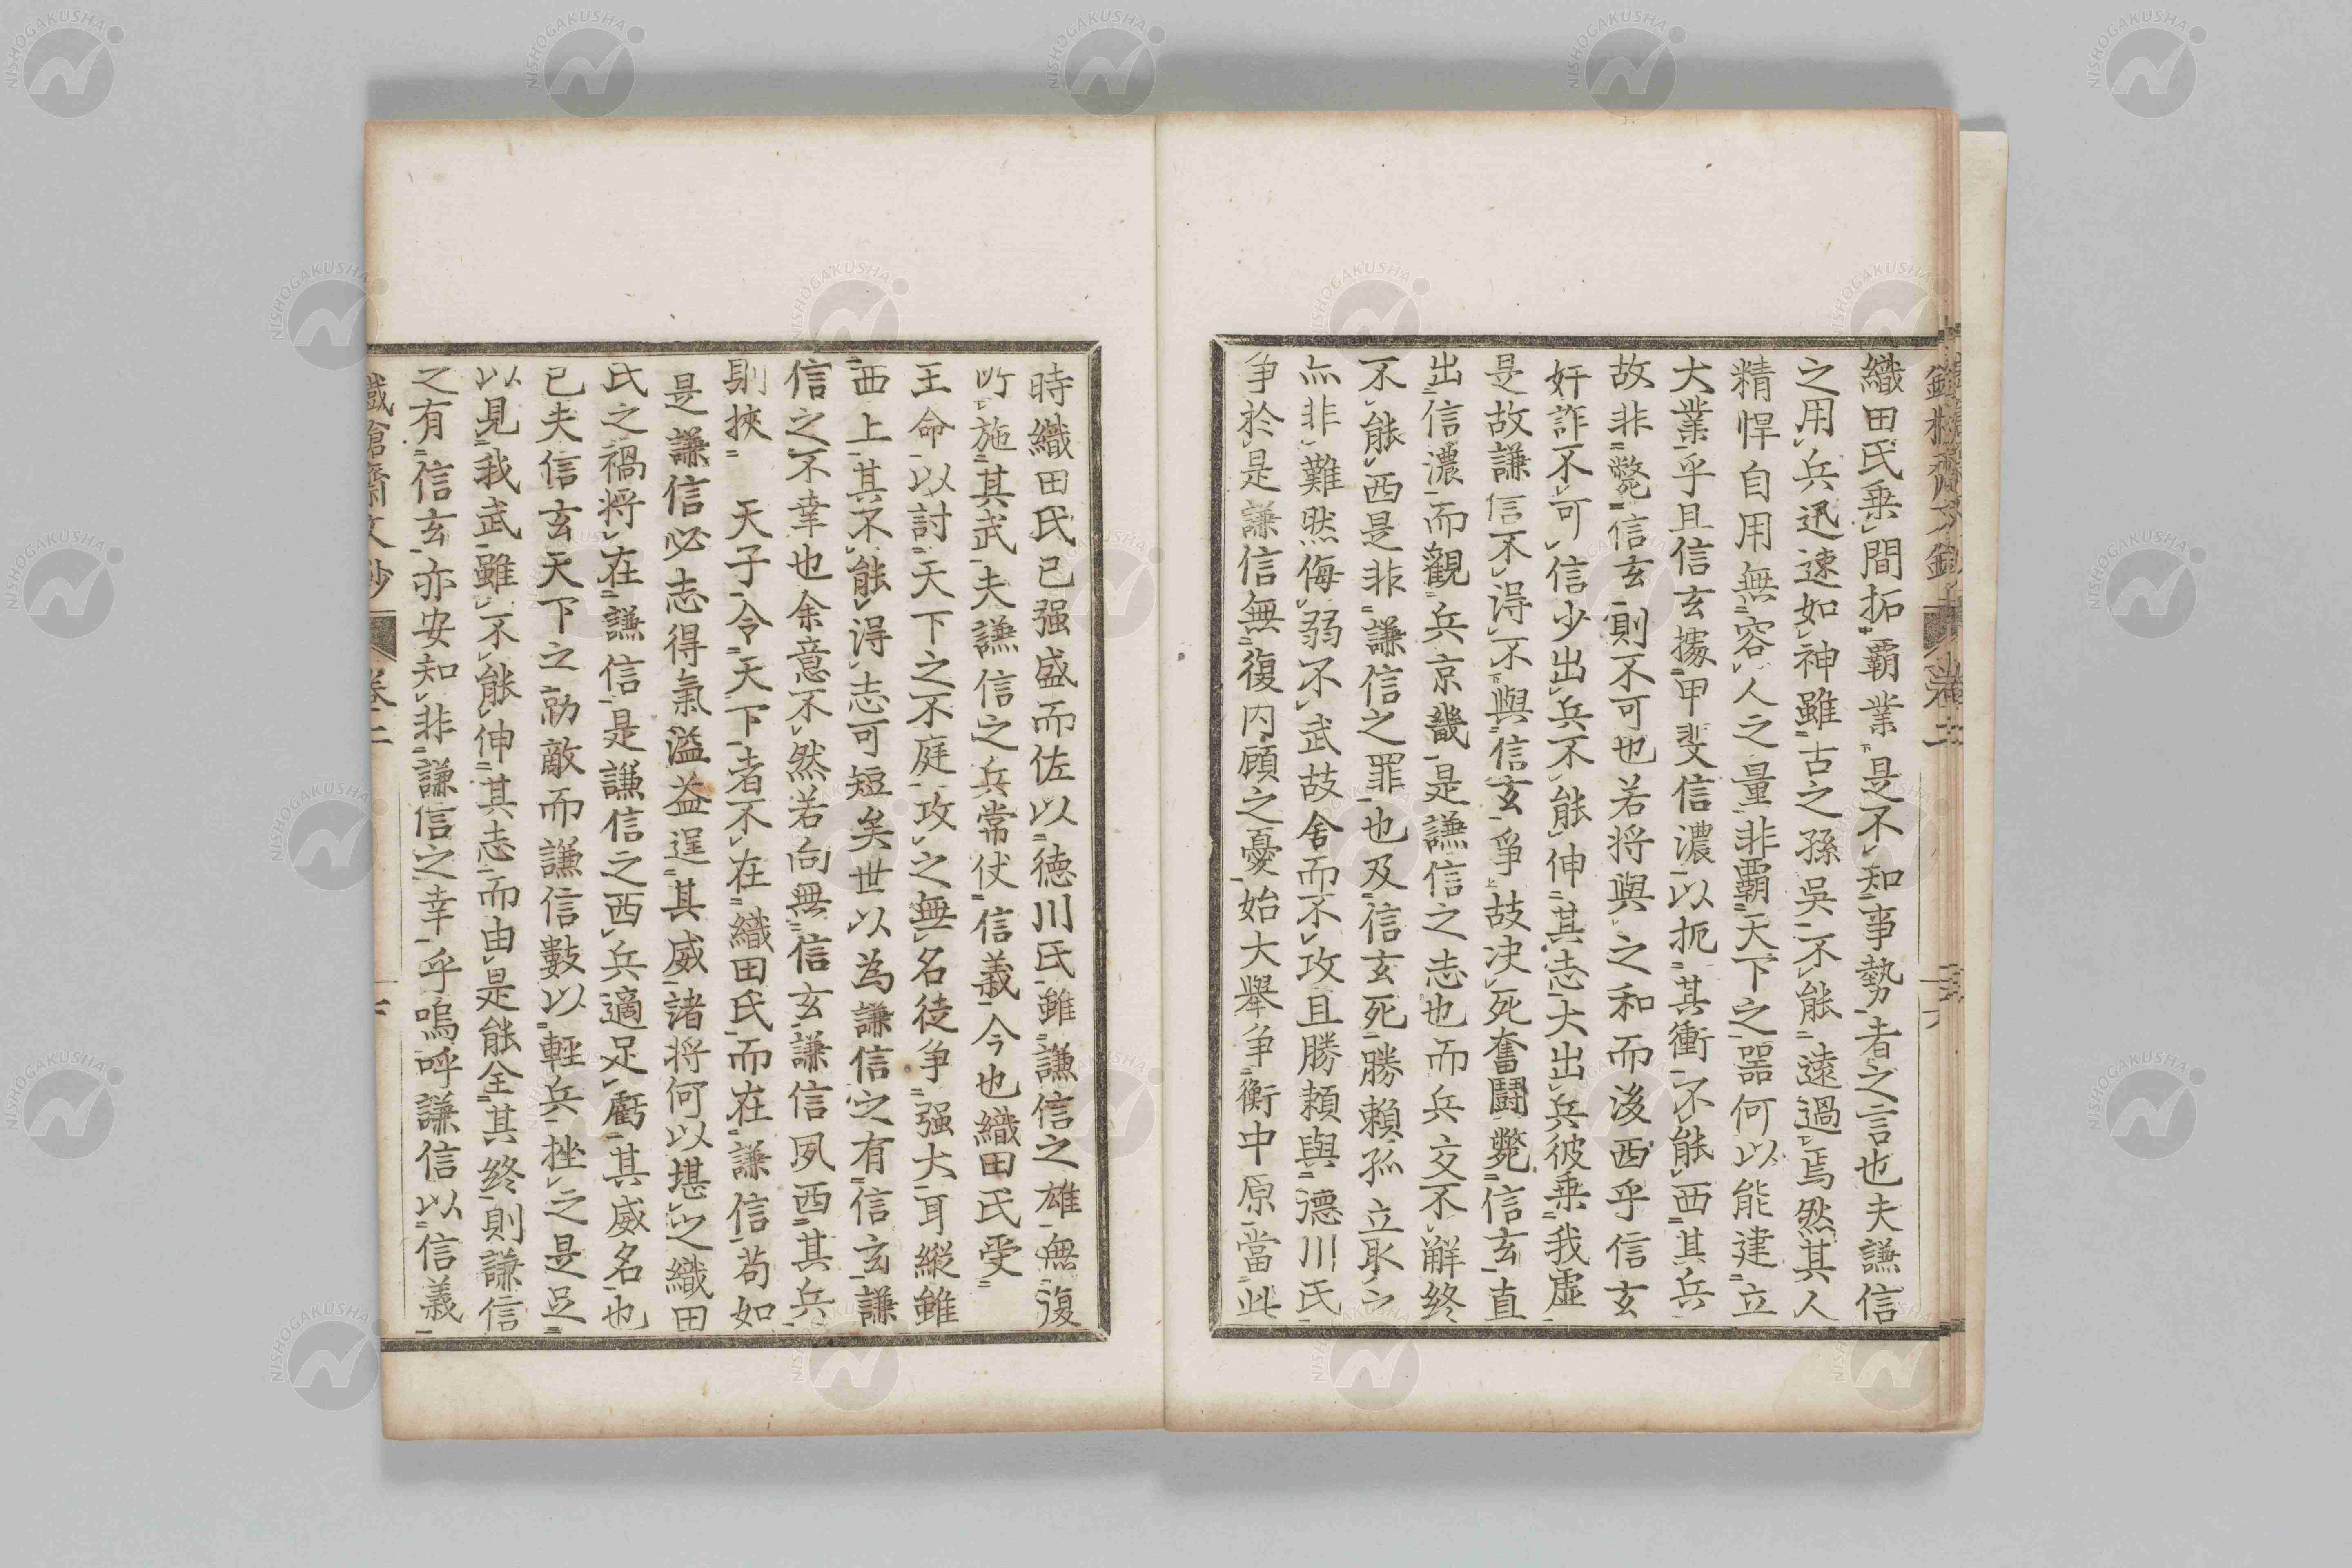 織田氏乗間拓覇業是不知事勢者之言也夫謙信
之用兵迅速如神雖古之孫吳不能遠過焉然其人
精悍自用無容人之量非覇天下之器何以能建立
大業乎且信玄據甲斐信濃以扼其衝不能西其兵
故非斃信玄則不可也若将與之和而後西乎信玄
奸詐不可信少出兵不能伸其志大出兵彼乗我虚
是故謙信不得不與信玄爭故决死奮鬪斃信玄直
出信濃而觀兵京畿是謙信之志也而兵交不解終
不能西是非謙信之罪也及信玄死勝賴孤立取之
亦非難然侮弱不武故舍而不攻且勝頼與德川氏
争於是謙信無復内顧之憂始大舉争衡中原當此
時織田氏已强盛而佐以徳川氏雖謙信之雄無復
所施其武夫謙信之兵常仗信義今也織田氏受
王命以討天下之不庭攻之無名徒争强大耳縱雖
西上其不能得志可短矣世以為謙信之有信玄謙
信之不幸也余意不然若向無信玄謙信夙西其兵
則挾 天子令天下者不在織田氏而在謙信苟如
是謙信必志得氣溢益逞其威諸将何以堪之織田
氏之禍将在謙信是謙信之西兵適足虧其威名也
已夫信玄天下之勍敵而謙信數以輕兵挫之是足
以見我武雖不能伸其志而由是能全其終則謙信
之有信玄亦安知非謙信之幸乎嗚呼謙信以信義
鐵槍齋文鈔 卷二